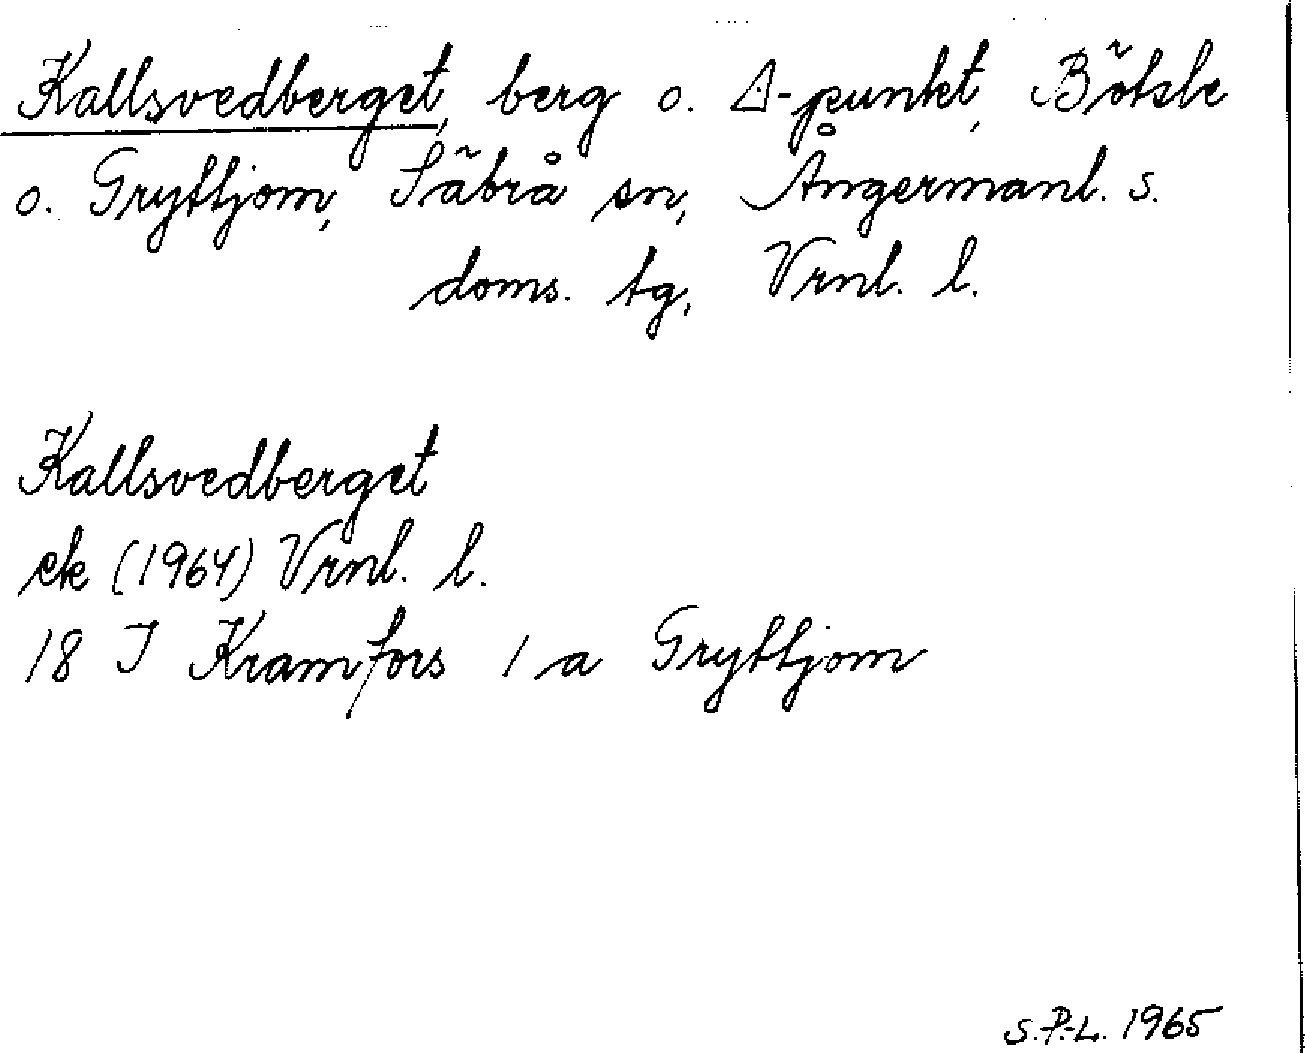 Kallsvedberget, berg o. Δ-punkt, Bötsle
o. Gryttjom, Säbrå sn, Ångermanl. s.
doms. tg, Vrnl. l.
Kallsvedberget
ek (1964) Vrnl. l.
18 I Kramfors 1 a Gryttjom
S.P.-L. 1965